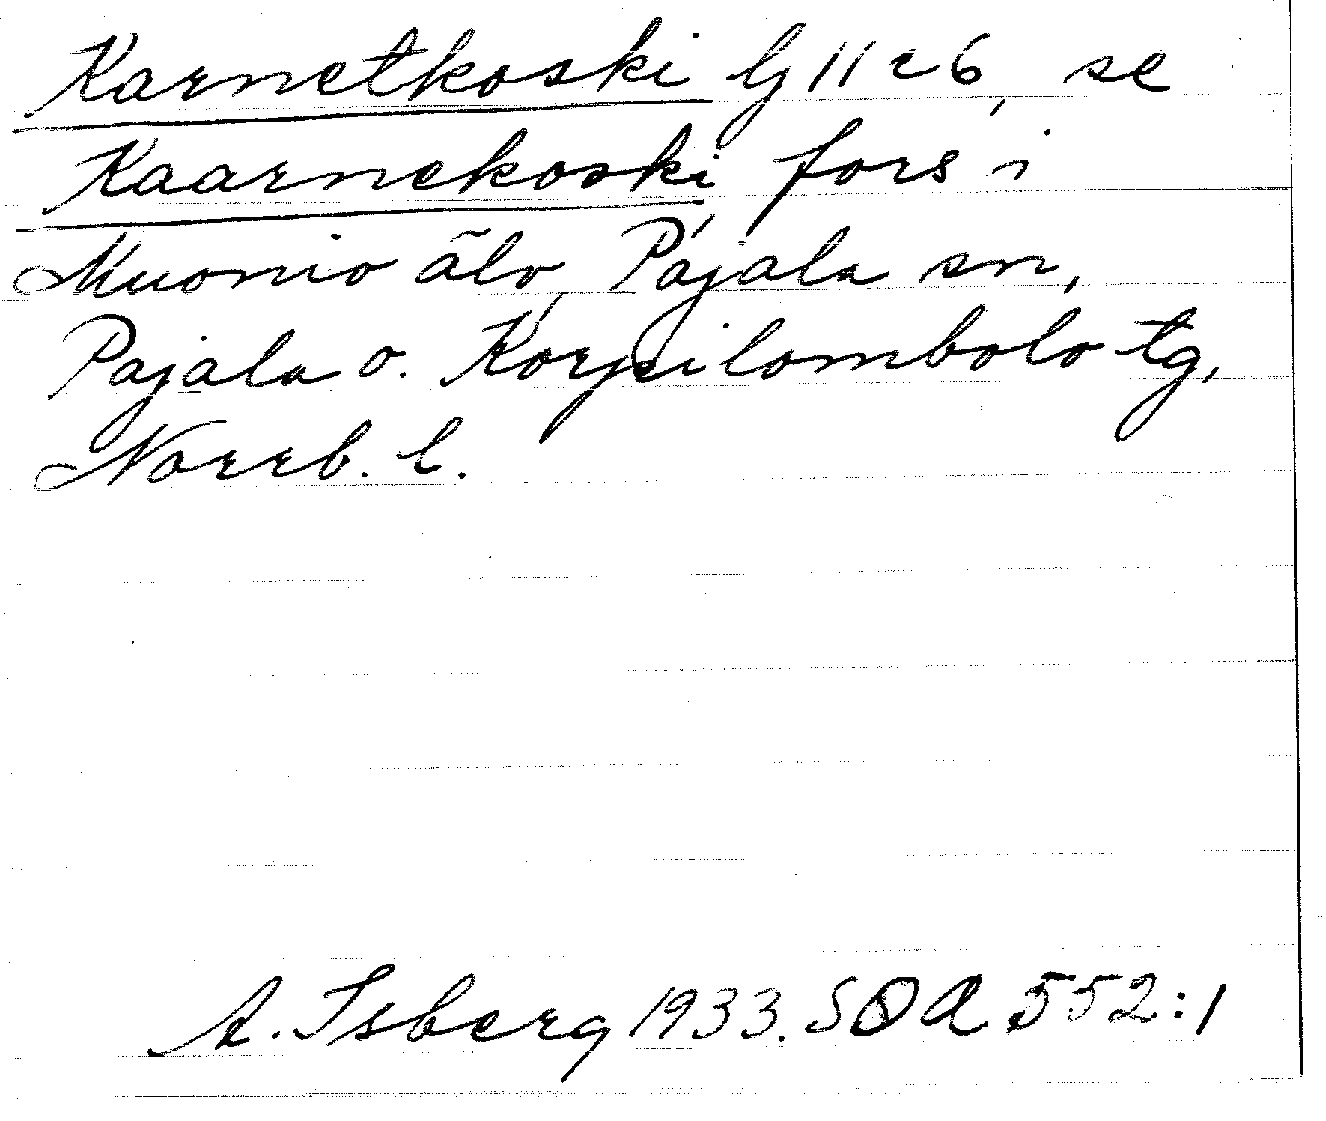 Karnetkoski Lj 11 c 6, se
Kaarnekoski fors i
Muonio älv, Pajala sn,
Pajala o. Korpilombolo tg,
Norrb. l.
A. Isberg 1933. SOA 552:1